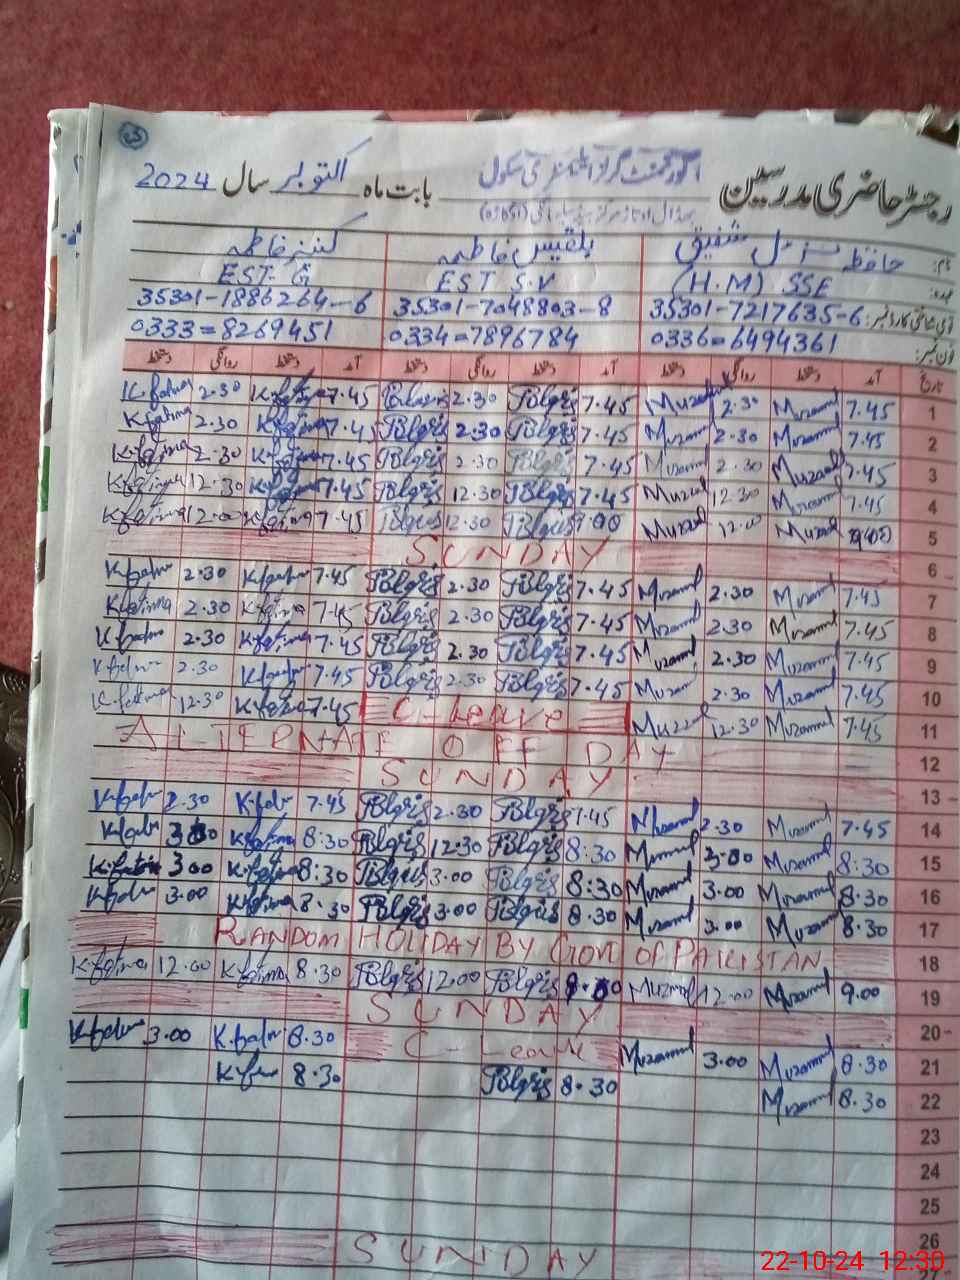 رجسٹر حاضری مدرسین گورنمنٹ گرلز ایلیمنٹری سکول بابت ماہ اکتوبر سال 2024
نام: حافظہ مزمل شفیق بلقیس فاطمہ کنیز فاطمہ
عہدہ: (H.M) SSE EST S.V EST-G
قومی شناختی کارڈ نمبر: 35301-7217635-6 35301-7048803-8 35301-1886264-6
فون نمبر: 0336=6494361 0334=7896784 0333=8269451
تاریخ آمد دستخط روانگی دستخط آمد دستخط روانگی دستخط آمد دستخط روانگی دستخط
K.fatima 2.30 K.fatima 7.45 Blqis 2.30 Blqis 7.45 Muzamml 2.30 Muzamml 7.45 1
K.fatima 2.30 K.fatima 7.45 Blqis 2.30 Blqis 7.45 Muzamml 2.30 Muzamml 7.45 2
K.fatima 2.30 K.fatima 7.45 Blqis 2.30 Blqis 7.45 Muzamml 2.30 Muzamml 7.45 3
K.fatima 12.30 K.fatima 7.45 Blqis 12.30 Blqis 7.45 Muzamml 12.30 Muzamml 7.45 4
K.fatima 12.00 K.fatima 7.45 Blqis 12.30 Blqis 9.00 Muzamml 12.00 Muzamml 5
SUNDAY 6
K.fatima 2.30 K.fatima 7.45 Blqis 2.30 Blqis 7.45 Muzamml 2.30 Muzamml 7.45 7
K.fatima 2.30 K.fatima 7.45 Blqis 2.30 Blqis 7.45 Muzamml 2.30 Muzamml 7.45 8
K.fatima 2.30 K.fatima 7.45 Blqis 2.30 Blqis 7.45 Muzamml 2.30 Muzamml 7.45 9
K.fatima 2.30 K.fatima 7.45 Blqis 2.30 Blqis 7.45 Muzamml 2.30 Muzamml 7.45 10
K.fatima 12.30 K.fatima 7.45 C-Leave Muzamml 12.30 Muzamml 7.45 11
ALTERNATE OFF DAY 12
SUNDAY 13
K.fatima 2.30 K.fatima 7.45 Blqis 2.30 Blqis 7.45 Muzamml 2.30 Muzamml 7.45 14
K.fatima 3.00 K.fatima 8:30 Blqis 12.30 Blqis 8:30 Muzamml 3.00 Muzamml 8:30 15
K.fatima 3.00 K.fatima 8:30 Blqis 3.00 Blqis 8:30 Muzamml 3.00 Muzamml 8.30 16
K.fatima 3.00 K.fatima 8.30 Blqis 3.00 Blqis 8.30 Muzamml 3.00 Muzamml 8.30 17
RANDOM HOLIDAY BY Govt OF PAKISTAN 18
K.fatima 12.00 K.fatima 8.30 Blqis 12.00 Blqis Muzamml 12.00 Muzamml 9.00 19
SUNDAY 20
K.fatima 3.00 K.fatima 8.30 C-Leave Muzamml 3.00 Muzamml 8.30 21
K.fatima 8.30 Blqis 8.30 Muzamml 8.30 22
23
24
25
26
SUNDAY 27
22-10-24 12:30